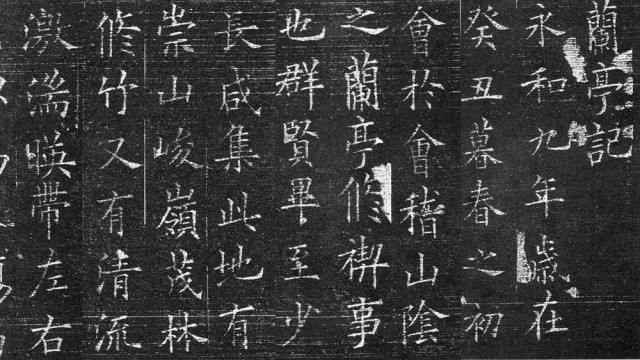 蘭亭記
永和九年歲在
癸丑暮春之初
會於會稽山陰
之蘭亭修禊事
也群賢畢至少
長咸集此地有
崇山峻嶺茂林
修竹又有清流
激湍暎帶左右